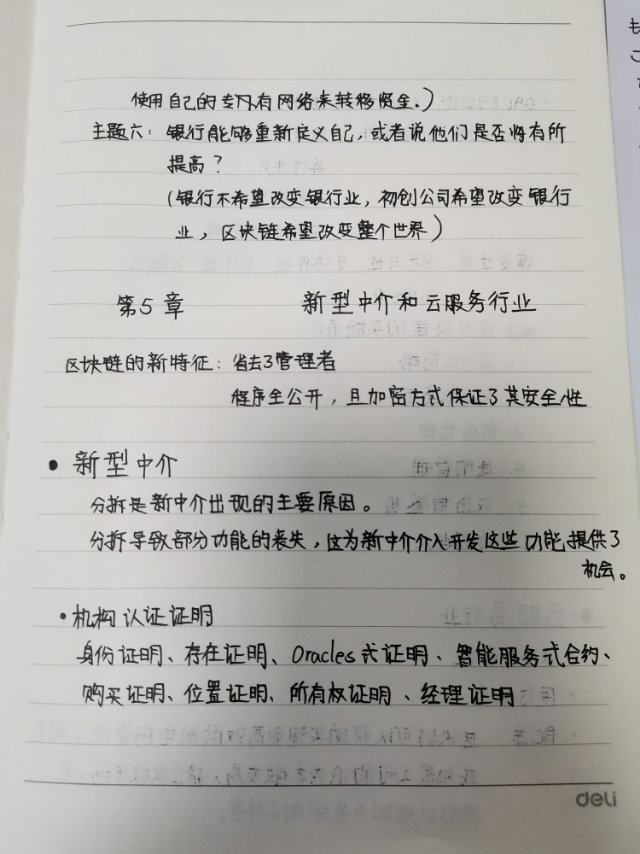 使用自己的专有网络来转移资金。)
主题六：银行能够重新定义自己，或者说他们是否将有所
提高？
(银行不希望改变银行业，初创公司希望改变银行
业，区块链希望改变整个世界)
第5章 新型中介和云服务行业
区块链的新特征：省去了管理者
程序全公开，且加密方式保证了其安全性
• 新型中介
分拆是新中介出现的主要原因。
分拆导致部分功能的丧失，这为新中介介入开发这些功能提供了
机会。
• 机构认证证明
身份证明、存在证明、Oracles式证明、智能服务式合约、
购买证明、位置证明、所有权证明、经理证明
deli